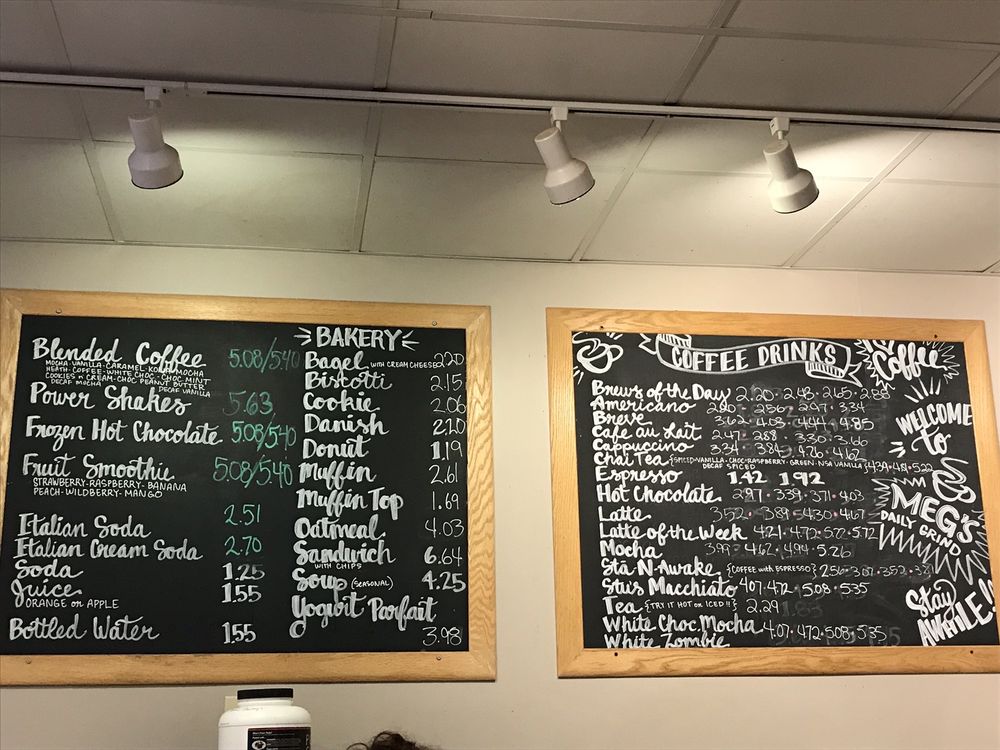 Blended Coffee 5.08/5.40
MOCHA·VANILLA·CARAMEL KONA MOCHA
HEATH·COFFEE·WHITE CHOC·CHOC MINT
COOKIES n' CREAM·CHOC PEANUT BUTTER
DECAF MOCHA DECAF VANILLA
Power Shakes 5.63
Frozen Hot Chocolate 5.08/5.40
Fruit Smoothie 5.08/5.40
STRAWBERRY·RASPBERRY·BANANA
PEACH·WILDBERRY·MANGO
Italian Soda 2.51
Italian Cream Soda 2.70
Soda 1.25
Juice 1.55
ORANGE or APPLE
Bottled Water 1.55
BAKERY
Bagel WITH CREAM CHEESE 2.20
Biscotti 2.15
Cookie 2.06
Danish 2.20
Donut 1.19
Muffin 2.61
Muffin Top 1.69
Oatmeal 4.03
Sandwich 6.64
WITH CHIPS
Soup (SEASONAL) 4.25
Yogurt Parfait
3.98
COFFEE DRINKS
Brews of the Day 2.20·2.43·2.65·2.88
Americano 2.97·3.34
Breve 3.62·4.03·4.44·4.85
Cafe au Lait 2.47·2.88·3.30·3.66
Cappuccino 3.34·3.84·4.26·4.62
Chai Tea {SPICED·VANILLA·CHOC·RASPBERRY·GREEN·NSA VANILLA}
DECAF SPICED
Espresso 1.42 1.92
Hot Chocolate 2.97·3.39·3.71·4.03
Latte 3.52·3.89·4.30·4.67
Latte of the Week 4.21·4.72·5.12·5.72
Mocha 3.99·4.62·4.94·5.26
Sta N-Awake {COFFEE with ESPRESSO} 2.56·3.07·3.52
Stu's Macchiato 4.07·4.72·5.08·5.35
Tea {TRY IT HOT or ICED!!} 2.29
White Choc. Mocha 4.07·4.72·5.08·5.35
White Zombie
Coffee
WELCOME
to
MEG'S
DAILY GRIND
Stay
AWHILE!!